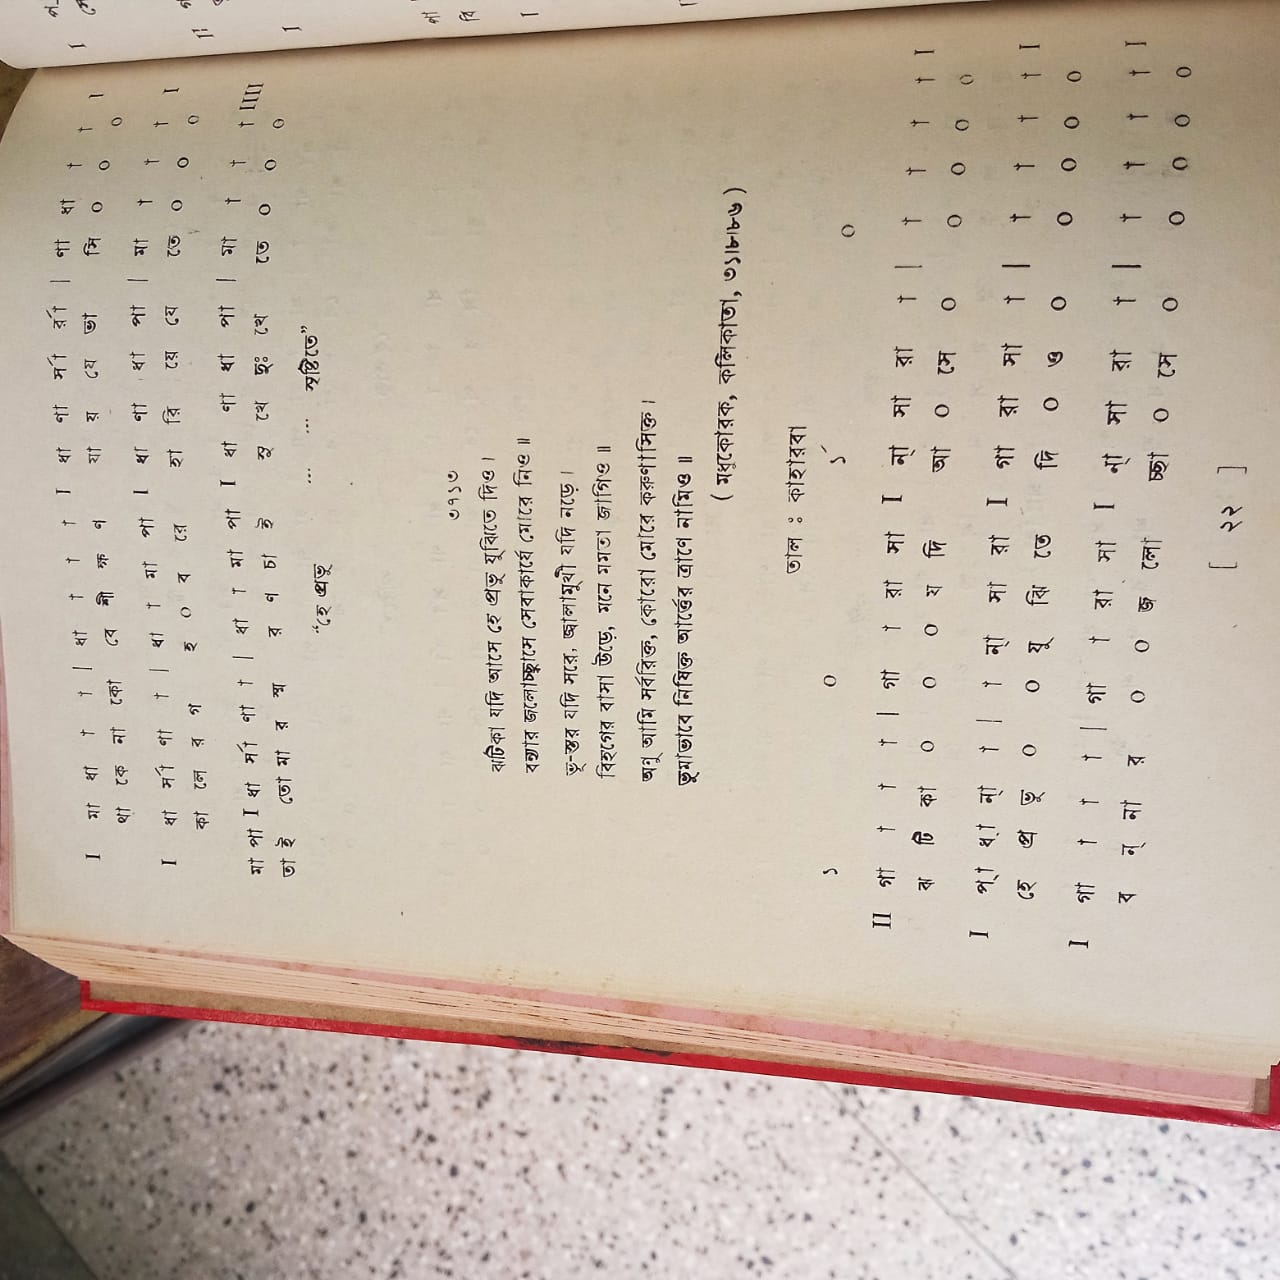 I মা ধা া া | ধা া া া I ধা ণা র্সা র্রা | ণা ধা া া I
থা কে না কো বে শী ক্ষ ণ যা য় যে ভা সি ০ ০ ০
I ধা র্সা ণা া | ধা া মা পা I ধা ণা ধা পা | মা া া া I
কা লে র গ হ ০ ব রে হা রি য়ে যে তে ০ ০ ০
মা পা I ধা র্সা ণা া | ধা া মা পা I ধা ণা ধা পা | মা া া া IIII
তা ই তো মা র স্ম র ণ চা ই সু খে দুঃ খে তে ০ ০ ০
“হে প্রভু ... ... সৃষ্টিতে”
৩৭১৩
ঝটিকা যদি আসে হে প্রভু যুঝিতে দিও ।
বন্যার জলোচ্ছ্বাসে সেবাকার্যে মোরে নিও ॥
ভূ-স্তর যদি সরে, জ্বালামুখী যদি নড়ে ।
বিহগের বাসা উড়ে, মনে মমতা জাগিও ॥
অনু আমি সর্বরিক্ত, কোরো মোরে করুণাসিক্ত ।
ভূমাভাবে নিষিক্ত আর্তের ত্রাণে নামিও ॥
( মধুকোরক, কলিকাতা, ৩১।৮।৮৬ )
তাল : কাহারবা
১ ০ ১́ ০
II গা া া া | গা া রা সা I ন্া সা রা া | া া া া I
ঝ টি কা ০ ০ ০ য দি আ ০ সে ০ ০ ০ ০ ০
I প্া ধ্া ন্া া | া ন্া সা রা I গা রা সা া | া া া া I
হে প্র ভু ০ ০ যু ঝি তে দি ০ ও ০ ০ ০ ০ ০
I গা া া া | গা া রা সা I ন্া সা রা া | া া া া I
ব ন্ না র ০ ০ জ লো চ্ছা ০ সে ০ ০ ০ ০ ০
[ ২২ ]